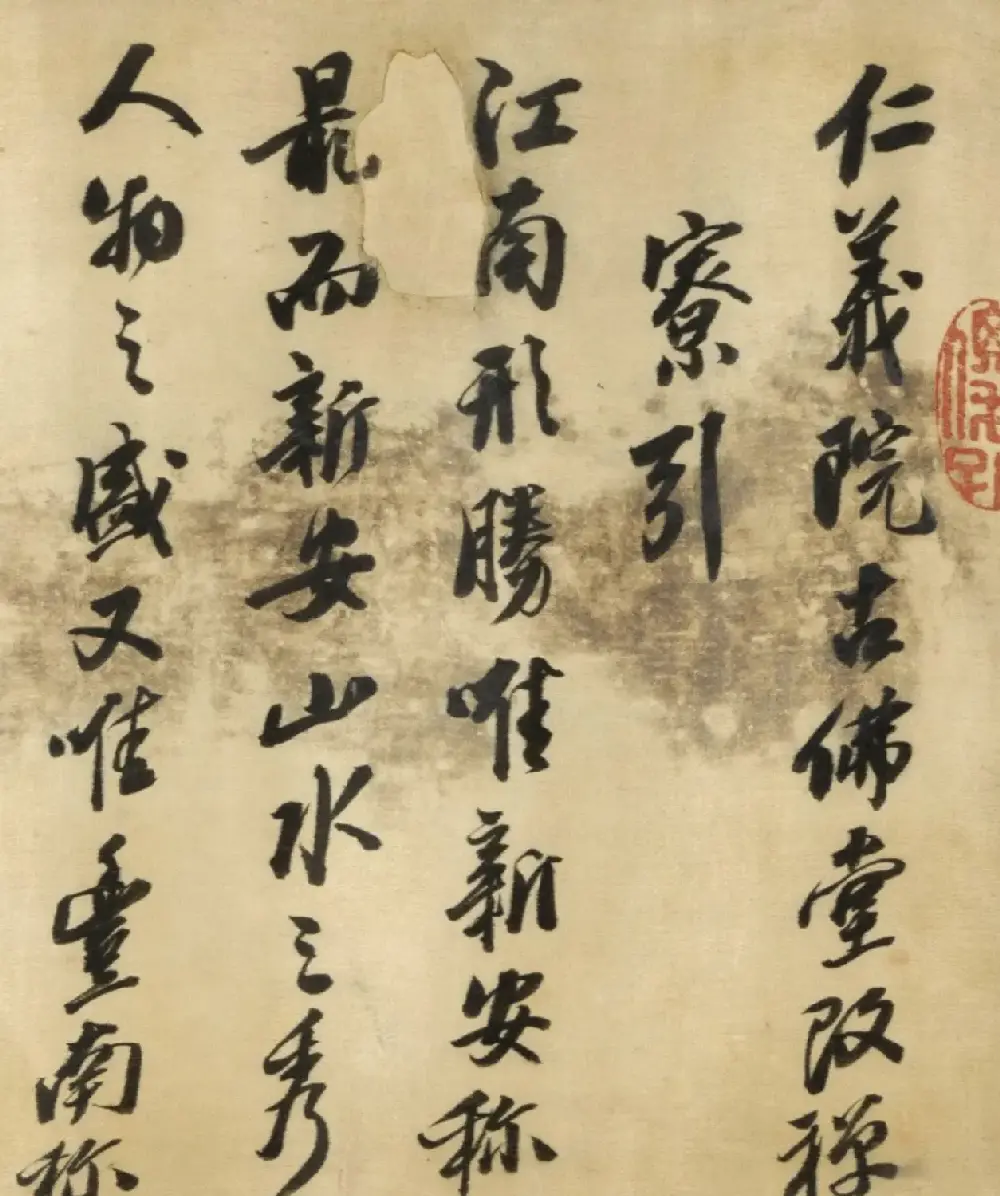 仁義院古佛堂改禪
寮引
江南形勝唯新安称
最而新安山水之秀
人物之盛又唯豊南称